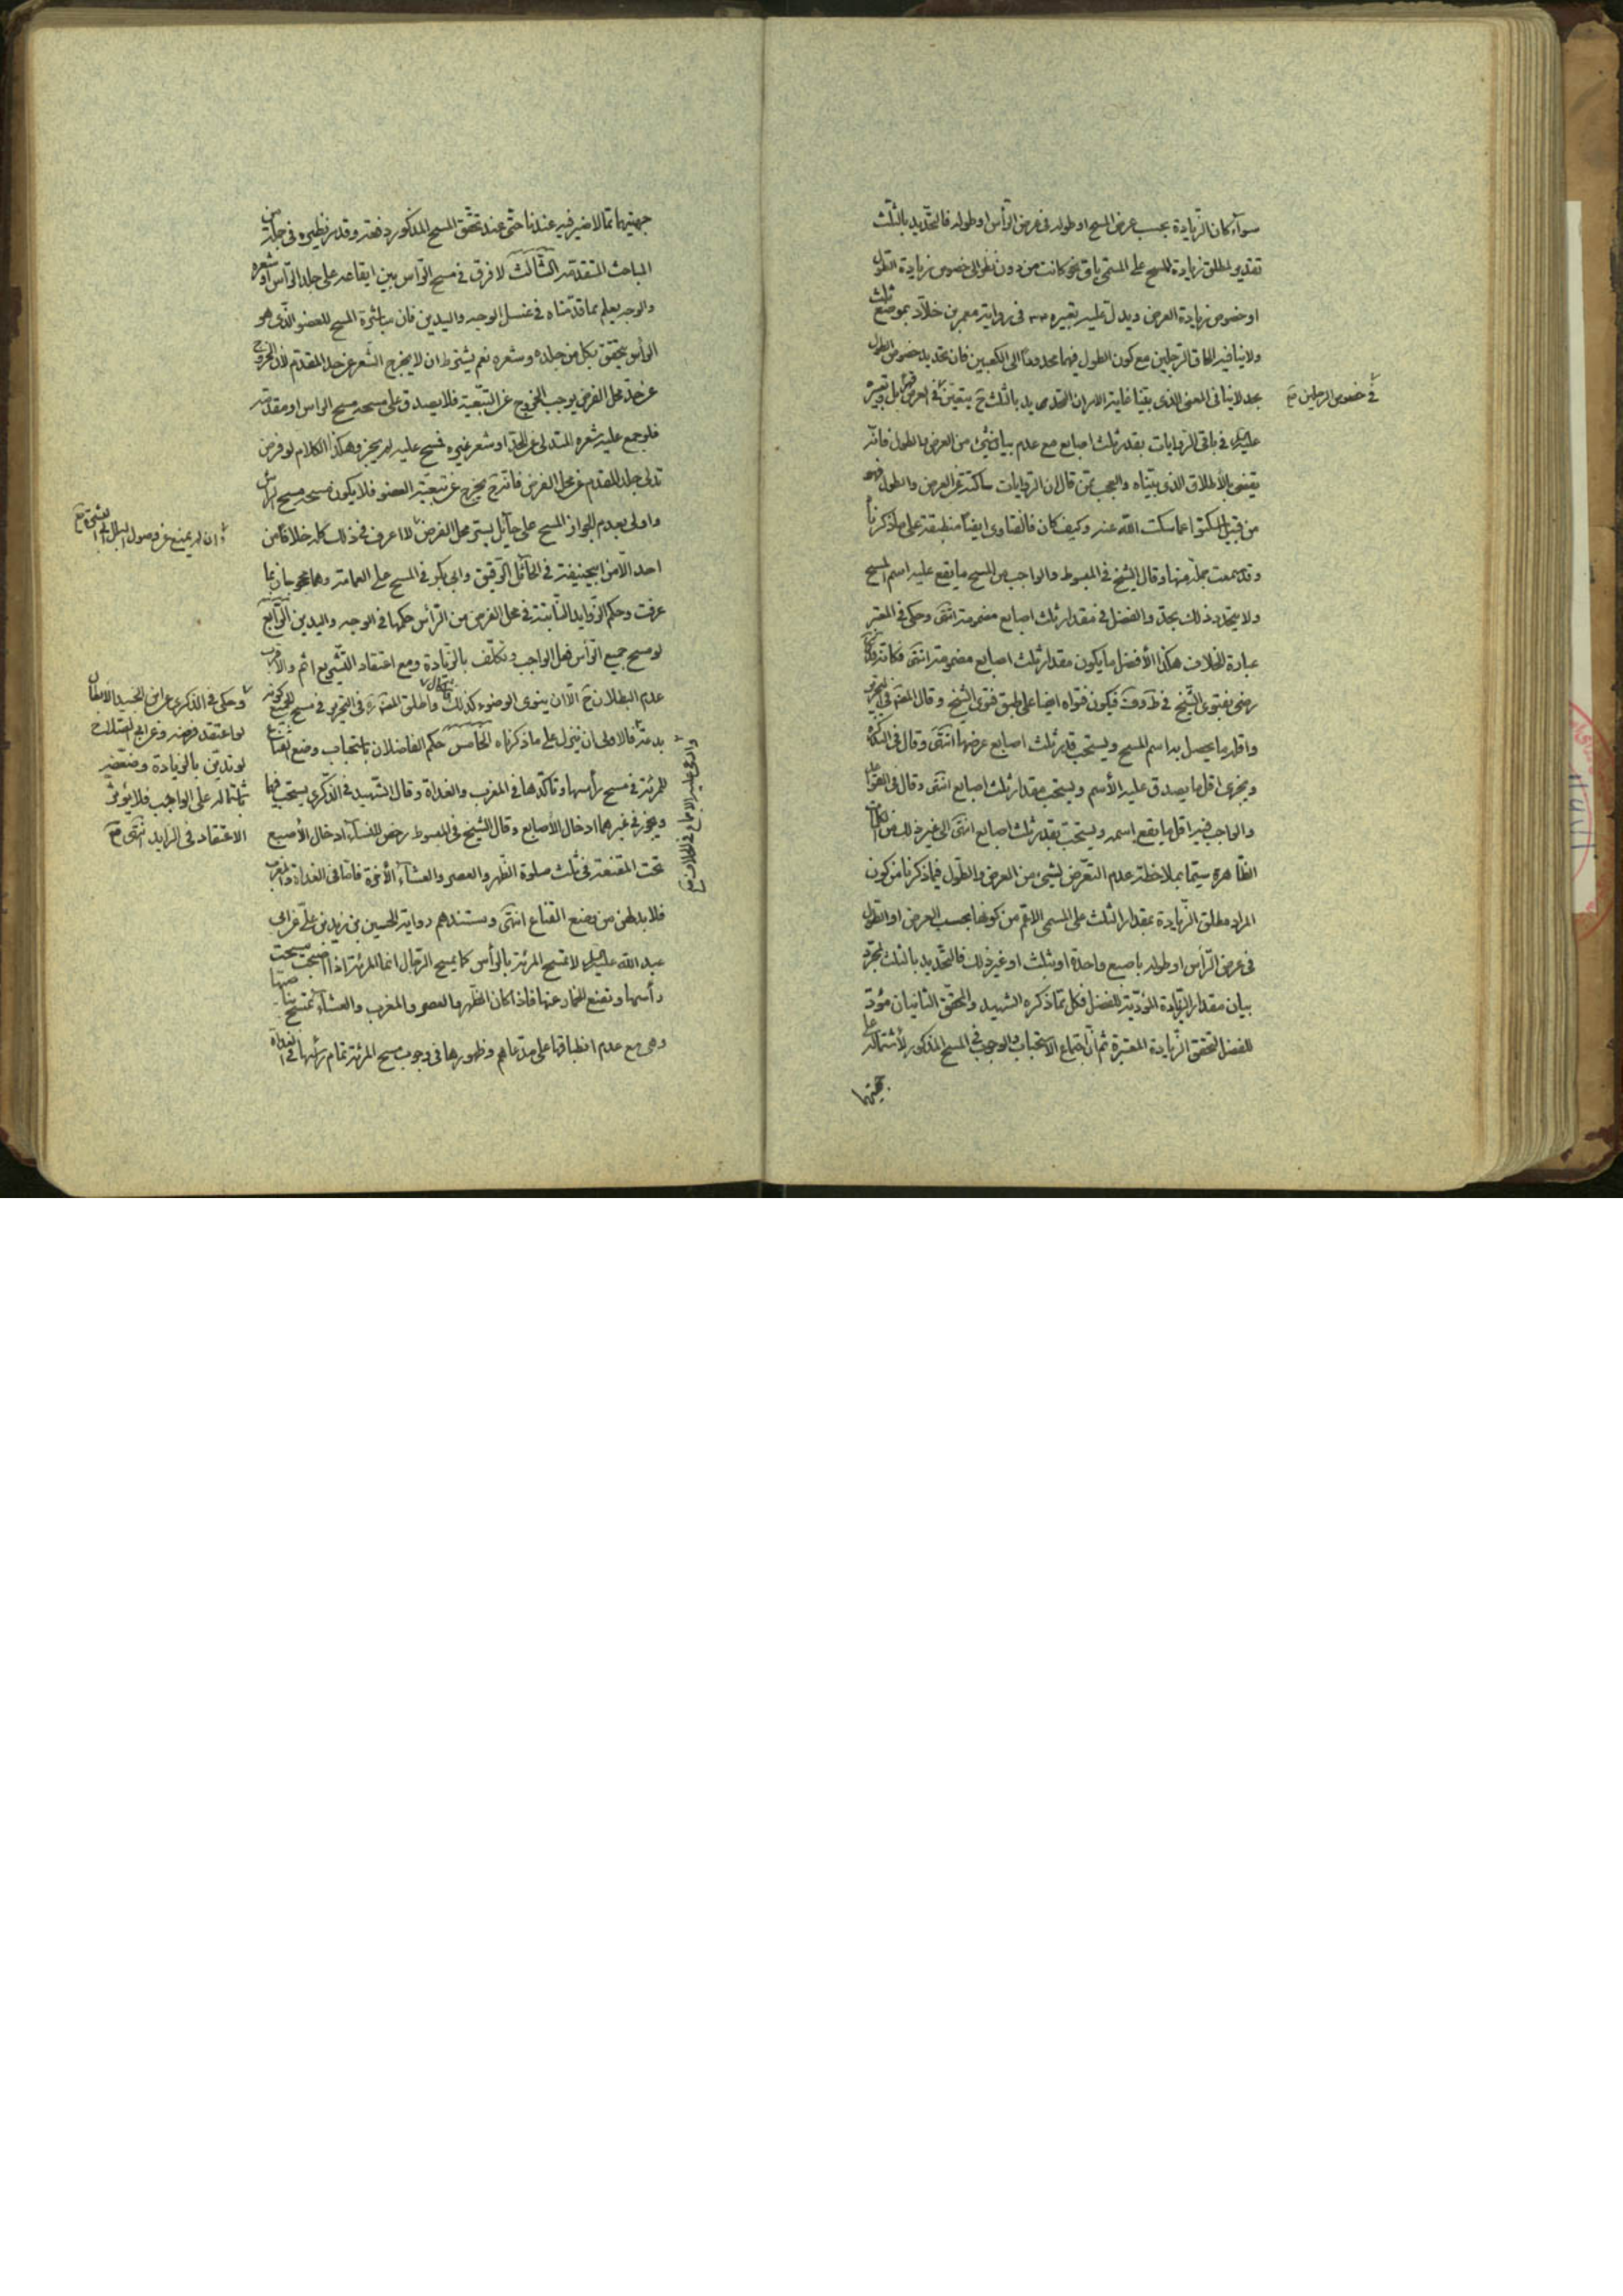 سوآء كان الزّيادة بحسب عرض المسح او طوله فى عرض الرّأس او طوله فالتّحديد بالثّلث
تقدير لمطلق زيادة المسح على المسمّى باىّ نحو كانت من دون نظر الى خصوص زيادة الطّول
او خصوص زيادة العرض ويدل عليه تعبيره فى رواية معمر بن خلّاد بموضع ثلث
ولا ينافيه الحاق الرّجلين مع كون الطول فيهما محدودا الى الكعبين فان تحديد خصوص الطول
بحد لا ينافى المعنى الذى بيّنا غاية الامر ان التحديد بالثلث ح يتعين فى العرض
فى خصوص الرجلين صح
عليه السلام فى باقى الروايات بقدر ثلث اصابع مع عدم بيان شئ من العرض والطول فانّه
يقتضى الأطلاق الذى بيّناه والعجب ممّن قال ان الروايات ساكتة عن العرض والطول فهو
من قبيل اسكتوا عما سكت اللّه عنه وكيف كان فالفتاوى ايضا منطبقة على ما ذكرنا
وقد سمعت جملة منها وقال الشّيخ فى المبسوط والواجب من المسح ما يقع عليه اسم المسح
ولا يتحدد ذلك بحدّ والفضل فى مقدار ثلث اصابع مضمومة انتهى وحكى فى المعتبر
عبارة الخلاف هكذا الأفضل ما يكون مقدار ثلث اصابع مضمومة انتهى فكانه
رضى بفتوى الشّيخ فى فيكون فتواه ايضا على طبق فتوى الشّيخ وقال العلامة فى التحرير
واقله ما يحصل به اسم المسح ويستحب قدر ثلث اصابع عرضها انتهى وقال فى التذكرة
ويجزى اقل ما يصدق عليه الأسم ويستحب مقدار ثلث اصابع انتهى وقال فى القواعد
والواجب فيه اقل ما يقع اسمه ويستحب بقدر ثلث اصابع انتهى الى غير ذلك من
الظّاهرة سيّما بملاحظة عدم التعرّض لشئ من العرض والطّول فيما ذكرنا من كون
المراد مطلق الزّيادة بمقدار الثلث على المسمى الاعم من كونها بحسب العرض او الطول
فى عرض الرّأس او طوله باصبع واحدة او بثلث او غير ذلك فالتّحديد بالثلث لمجرّد
بيان مقدار الزيادة المؤدّية للفضل فكل مما ذكره الشهيد والمحقّق الثانيان مؤدّ
للفضل لتحقق الزّيادة المعتبرة ثم انّ اجتماع الاستحباب والوجوب فى المسح المذكور لأشتماله على
جهتيهما
جهتيهما ممّا لا ضير فيه عندنا حتّى عند تحقق المسح المذكور دفعة وقد مر نظيره فى جملة من
المباحث المتقدّمة الثّالث لا فرق فى مسح الرّاس بين ايقاعه على جلد الرّاس او شعره
والوجه يعلم مما قدّمناه فى غسل الوجه واليدين فان مباشرة المسح للعضو الّذى هو
الرأس يتحقق بكل من جلده وشعره نعم يشترط ان لا يخرج الشّعر عن حد المقدّم لان الخروج
عن حدّ محل الفرض يوجب الخروج عن التّبعيّة فلا يصدق على مسحه مسح الراس او مقدّمه
فلو جمع عليه شعره المتدلى عن الحدّ او شعر غيره فمسح عليه لم يجز وهكذا الكلام لو فرض
تدلى جلد المقدم عن محل الفرض فانه ح يخرج عن تبعيّة العضو فلا يكون مسحه مسح الرأس
واولى بعدم الجواز المسح على حآئل يستر محل الفرض لا اعرف فى ذلك كله خلافا من
وان لم يمنع عن وصول البلل الى البشرة صح
احد الّا من ابيحنيفة فى الحآئل الرّقيق وابى بكر فى المسح على العمامة وهما محجوجان بما
عرفت وحكم الزّوايد النّابتة فى محل الفرض من الرّأس حكمها فى الوجه واليدين الرّابع
لو مسح جميع الرّأس فعل الواجب وتكلّف بالزّيادة ومع اعتقاد التشّريع اثم والأقرب
عدم البطلان ح الّا ان ينوى الوضوء كذلك واطلق العلامة فى التحرير فى مسح الجميع كونه
بدعة فالاولى ان ينزل على ما ذكرناه الخامس حكم الفاضلان باستحباب وضع القناع
للمرئة فى مسح رأسها وتأكّدها فى المغرب والغداة وقال الشّهيد فى الذكرى يستحب فيهما
ويجوز فى غيرهما ادخال الأصابع وقال الشّيخ فى المبسوط رخص للنسآء ادخال الأصبع
تحت المقنعة فى ثلث صلوة الظّهر والعصر والعشآء الأخرة فامّا فى الغداة والمغرب
فلا بد لهن من وضع القناع انتهى ومستندهم رواية الحسين بن زيد بن علىّ عن ابى
عبد اللّه عليه السلام لا تمسح المرئة بالرأس كما يمسح الرّجال انما المرئة اذا اصبحت مسحت
رأسها وتضع الخمار عنها فاذا كان الظّهر والعصر والمغرب والعشآء تمسح بناصيتها
وهى مع عدم انطباقها على مدّعاهم وظهورها فى وجوب مسح المرئة تمام رأسها فى الغداة
وحكى فى الذكرى عن ابن الجنيد الأبطال
لو اعتقد فرضه وعن ابى الصّلاح
لو تديّن بالزيادة وضعّفه
باشتماله على الواجب فلا يؤثّر
الاعتقاد فى الزايد انتهى صح
وادّعى عليه الاجماع فى الخلاف صح